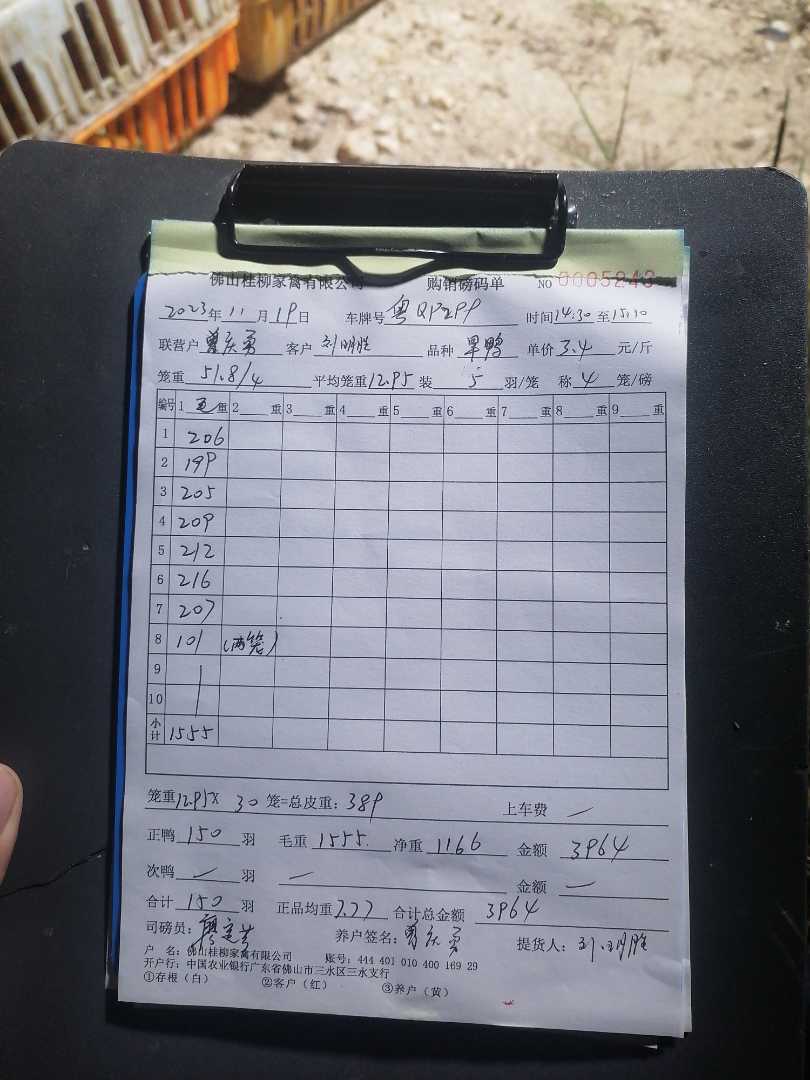 佛山桂柳家禽有限公司 购销磅码单 NO 0005243
2023年 11月 19日 车牌号 粤QP299 时间14:30至15:10
联营户 曾庆勇 客户 刘明胜 品种 旱鸭 单价 3.4 元/斤
笼重 51.8/4 平均笼重12.95 装 5 羽/笼 称 4 笼/磅
编号 1 毛 重 2 重 3 重 4 重 5 重 6 重 7 重 8 重 9 重
1 206
2 199
3 205
4 209
5 212
6 216
7 207
8 101 (两笼)
9
10
小计 1555
笼重12.95× 30 笼=总皮重: 389 上车费 —
正鸭 150 羽 毛重 1555. 净重 1166 金额 3964
次鸭 — 羽 — 金额 —
合计 150 羽 正品均重 7.77 合计总金额 3964
司磅员: 养户签名: 曾庆勇 提货人: 刘明胜
户 名: 佛山桂柳家禽有限公司 账号: 444 401 010 400 169 29
开户行: 中国农业银行广东省佛山市三水区三水支行
①存根(白) ②客户(红) ③养户(黄)